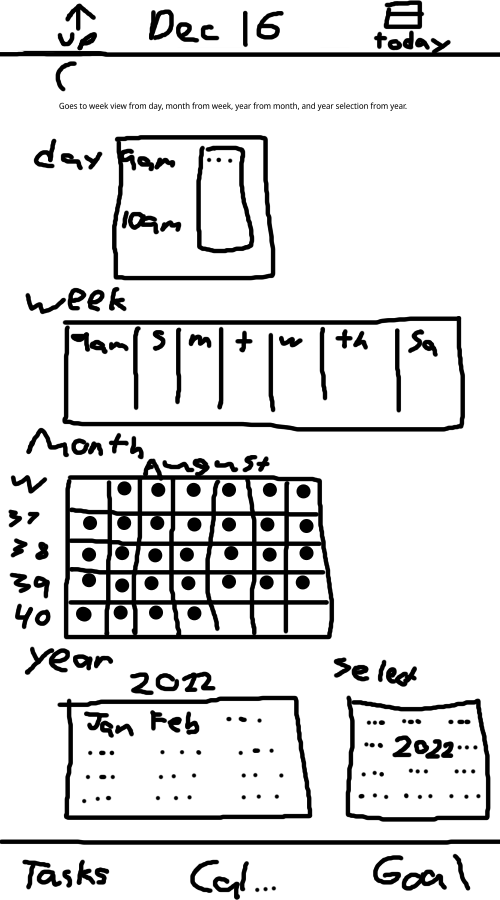 up Dec 16 today
Goes to week view from day, month from week, year from month, and year selection from year.
day 9am ...
10am
week
9am s m t w th sa
Month
August
W
37
38
39
40
year
2022
Select
Jan Feb ...
2022
Tasks Cal... Goal